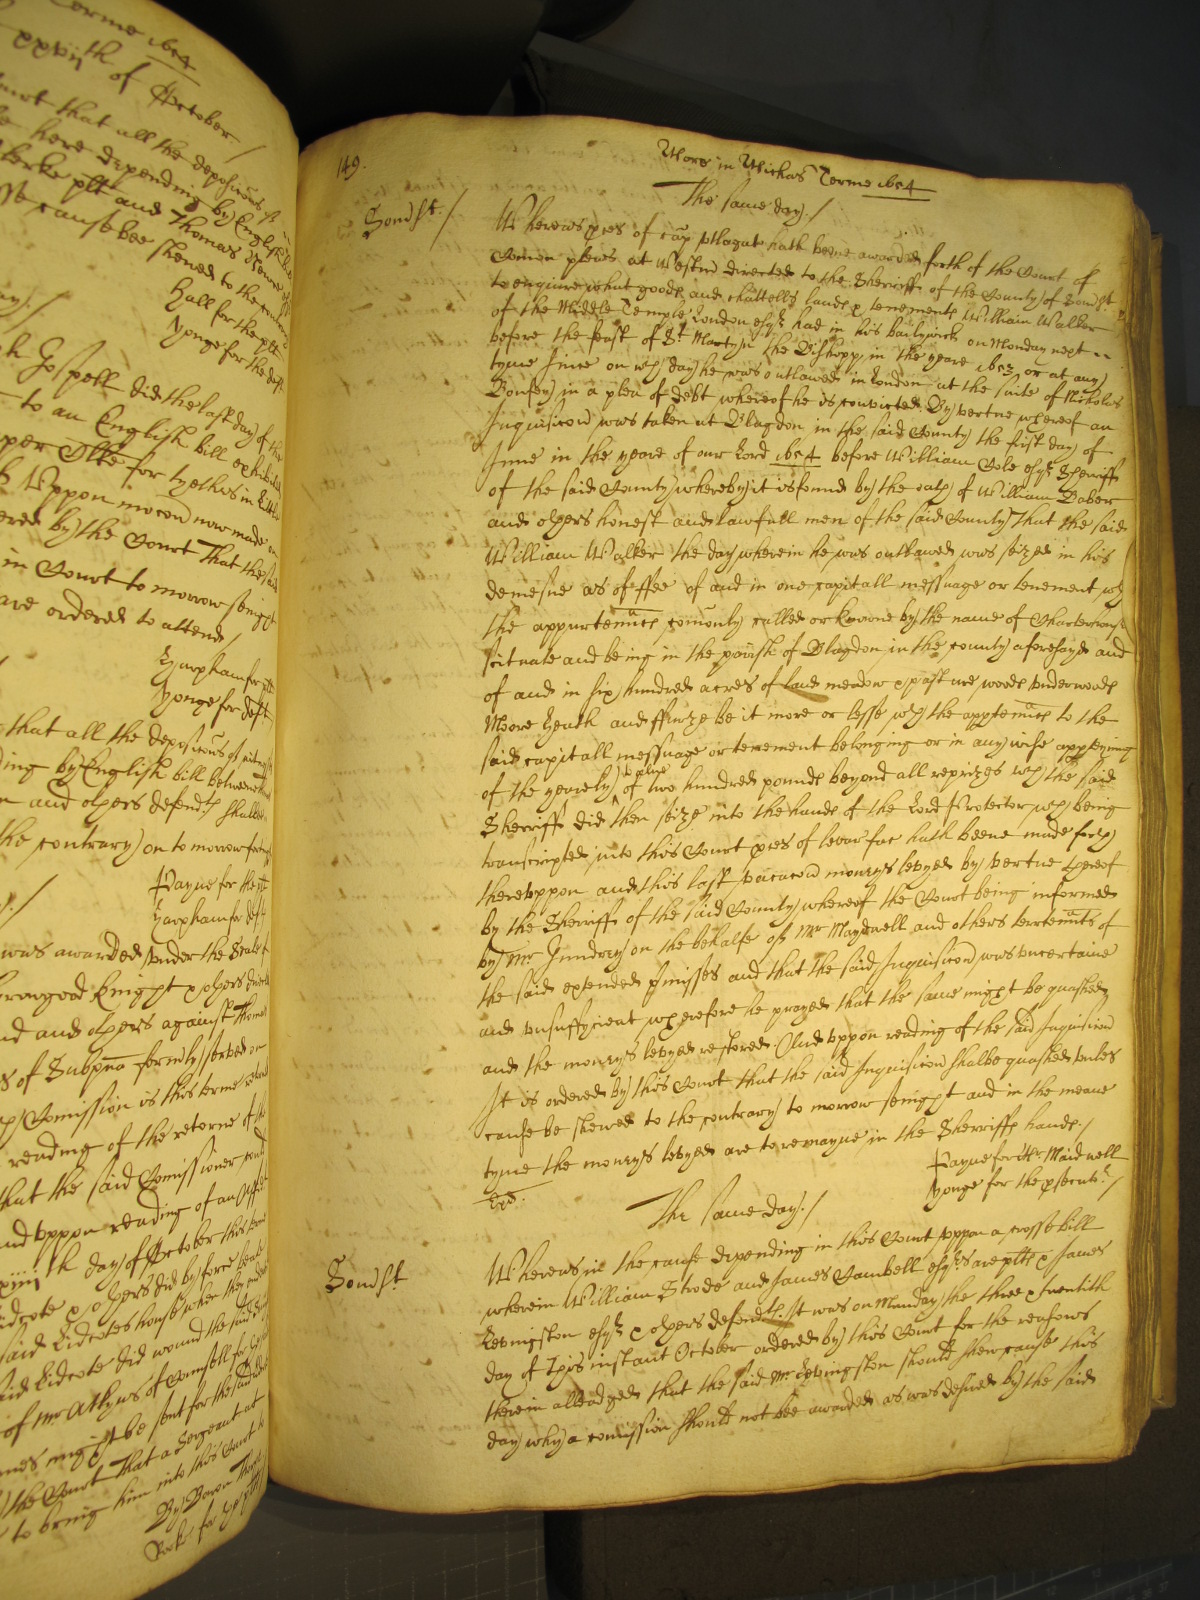 Terme 1654
xxviith of October./
that all the deposicons
here depending by English
plt and Thomas
cause bee shewed to the contrary
Hall for the plt
Yonge for the deft
Gospell did the last day of this
to an English bill exhibited
for tythes in
Vppon mocon now made
by the Court That the said
in Court to morrow senight
are ordered to attend/
Harpham for plt
Yonge for deft
that all the deposicons of
by English bill betweene
and others defendts shalbe
the contrary on to morrow
Payne for the plt
Harpham for deft
was awarded vnder the Seale of
knight & others
and others against Thomas
of Subpena formerly served on
Comission is this terme
reading of the retorne of
that the said Comissioner
and vppon reading of an
th day of October this
& others did by force
said Lidcotes house when
Lidcote did wound the said
of Mr Atkyns of Counsell for
might be sent for
the Court That a Sergeant at
to bring him into this Court
By Baron
149.
More in Michas Terme 1654
The same day./
Somst./
Whereas pces of cap vtlagat hath beene awarded forth of the Court of
Comon pleas at Westmr directed to the Sherriffe of the County of Somst
to enquire what goods and chattells lands & tenements William Walker
of the Middle Temple London esqr had in his bailiwick on Monday next
before the feast of St Martyn the Bishopp in the yeare 1652 or at any
tyme since on wch day he was outlawed in London at the suite of Nicholas
Bonfey in a plea of debt whereof he is convicted By vertue whereof an
Inquisicon was taken at Blagdon in the said County the first day of
June in the yeare of our Lord 1654 before William Cole esqr Sherriffe
of the said County whereby it is found by the oath of William Baber
and others honest and lawfull men of the said County That the said
William Walker the day wherein he was outlawed was seized in his
demesne as of ffee of and in one capitall messuage or tenement wth
the appurtennces comonly called or knowne by the name of Charterhouse
scituate and being in the parish of Blagdon in the county aforesayd and
of and in six hundred acres of land meadow & pasture woods vnderwoods
Moore heath and ffurze be it more or lesse wth the apptennces to the
said capitall messuage or tenement belonging or in any wise apptening
of the yearely value of two hundred pounds beyond all reprizes wch the said
Sherriffe did then seize into the hands of the Lord Protector wch being
transcripted into this Court pces of levar fac hath beene made forth
therevppon and this last vacacon moneys levyed by vertue thereof
by the Sherriffe of the said County whereof the Court being informed
by Mr Jundrey on the behalfe of Mr Maydwell and others terrtennts of
the said extended pmisses and that the said Inquisicon was vncertaine
and vnsuffycient wherefore he prayed that the same might be quashed
and the moneys levyed restored. And vppon reading of the said Inquisicon
It is ordered by this Court that the said Inquisicon shalbe quashed vnles
cause be shewed to the contrary to morrow senight and in the meane
tyme the moneys levyed are to remayne in the Sherriffs hands./
Payne for Mr Maidwell
Yonge for the psecutr./
The same day./
Somst
Whereas in the cause depending in this Court vppon a crosse bill
wherein William Strode and James Cambell esqrs are plts & James
Levingston esqr & others defendts It was on Munday the three & twentith
day of this instant October ordered by this Court for the reasons
therein alleadged that the said Mr Levingston should shew cause this
day why a comission should not bee awarded as was desired by the said